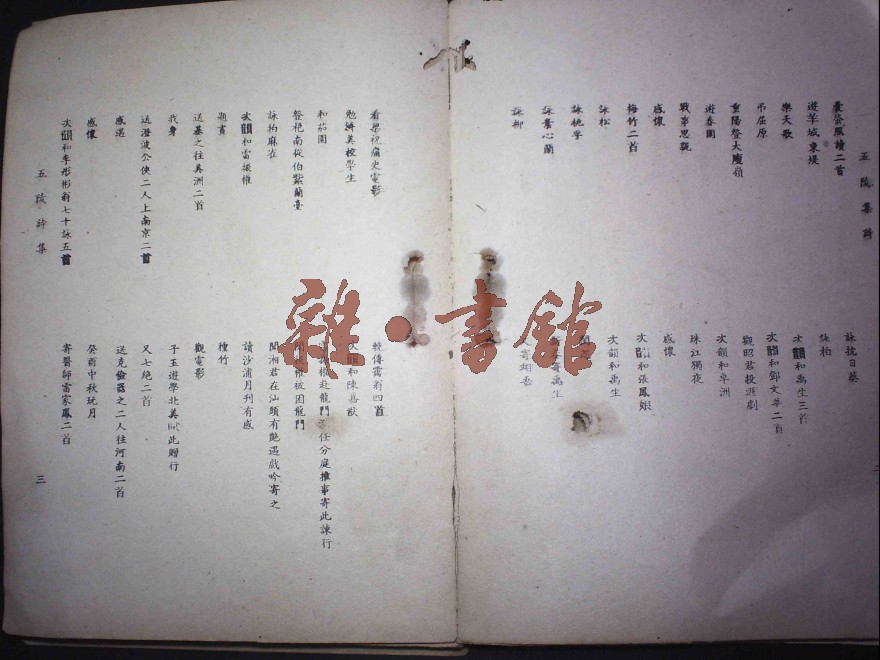 五陵集詩
遊羊城東堤
樂天歌
吊屈原
重陽登大庾嶺
遊春園
戰事思親
感懷
梅竹二首
詠松
詠桃李
詠蕙心蘭
詠柳
詠抗日塟
詠柏
次韻和禹生三首
次韻和鄧文華二首
觀昭君投涯劇
次韻和卓洲
珠江獨夜
感懷
次韻和張鳳
次韻和禹生
寄禹生
又寄翊吾
二
看梁祝痛史電影
勉濟美校學生
和茄園
整袍南從伯紫蘭臺
詠拘麻雀
次韻和雷援椎
題畫
送基之往美洲二首
我身
送澄波公俠二人上南京二首
感遇
感懷
次韻和李彤彬翁七十詠五首
五陵詩集
輓傳霭翁四首
次韻和陳嘉猷
根赴龍門任分庭推事寄此諫行
被困龍門
聞湘君在汕頭有艶遇戲吟寄之
讀沙浦月刋有感
種竹
觀電影
子玉遊學北美賦此贈行
又七絕二首
送克儉器之二人往河南二首
癸酉中秋玩月
寄醫師雷家鳳二首
三
雜·書館